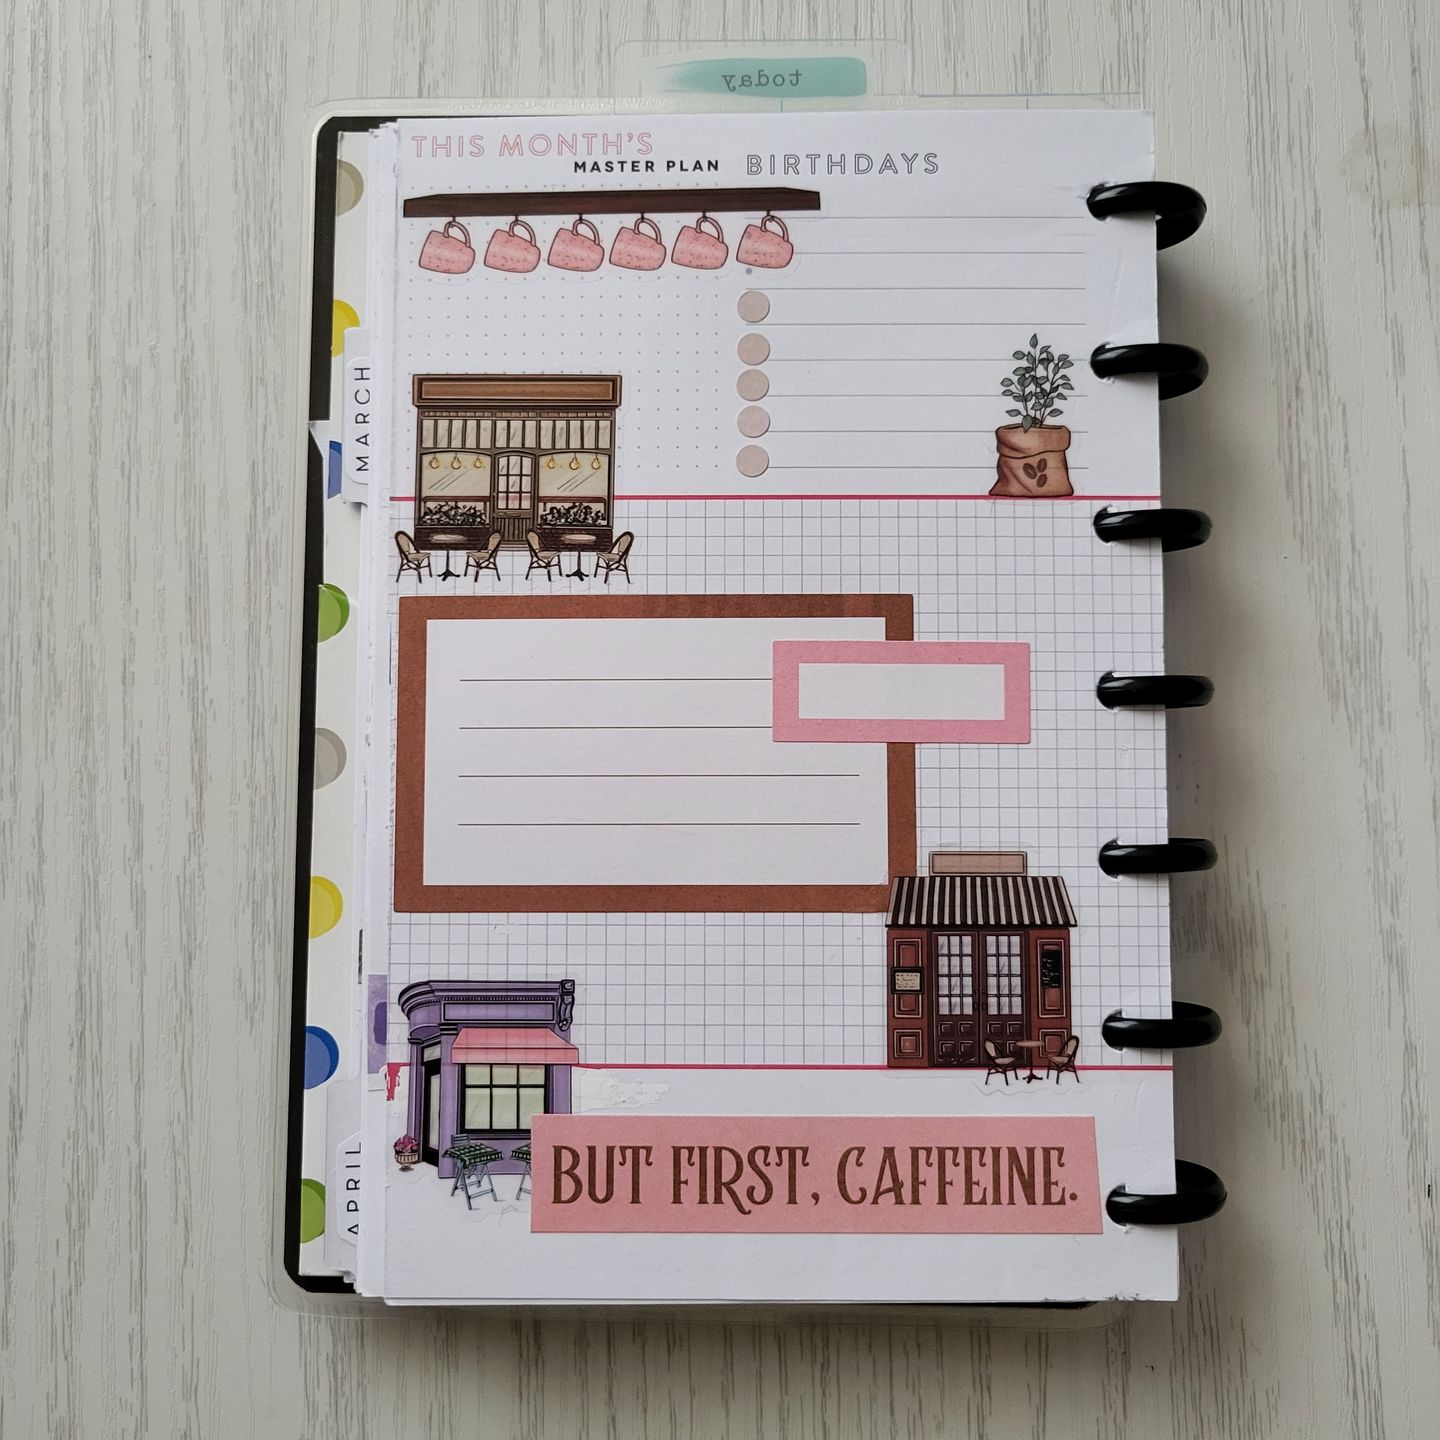 today
THIS MONTH'S
MASTER PLAN
BIRTHDAYS
MARCH
APRIL
BUT FIRST, CAFFEINE.